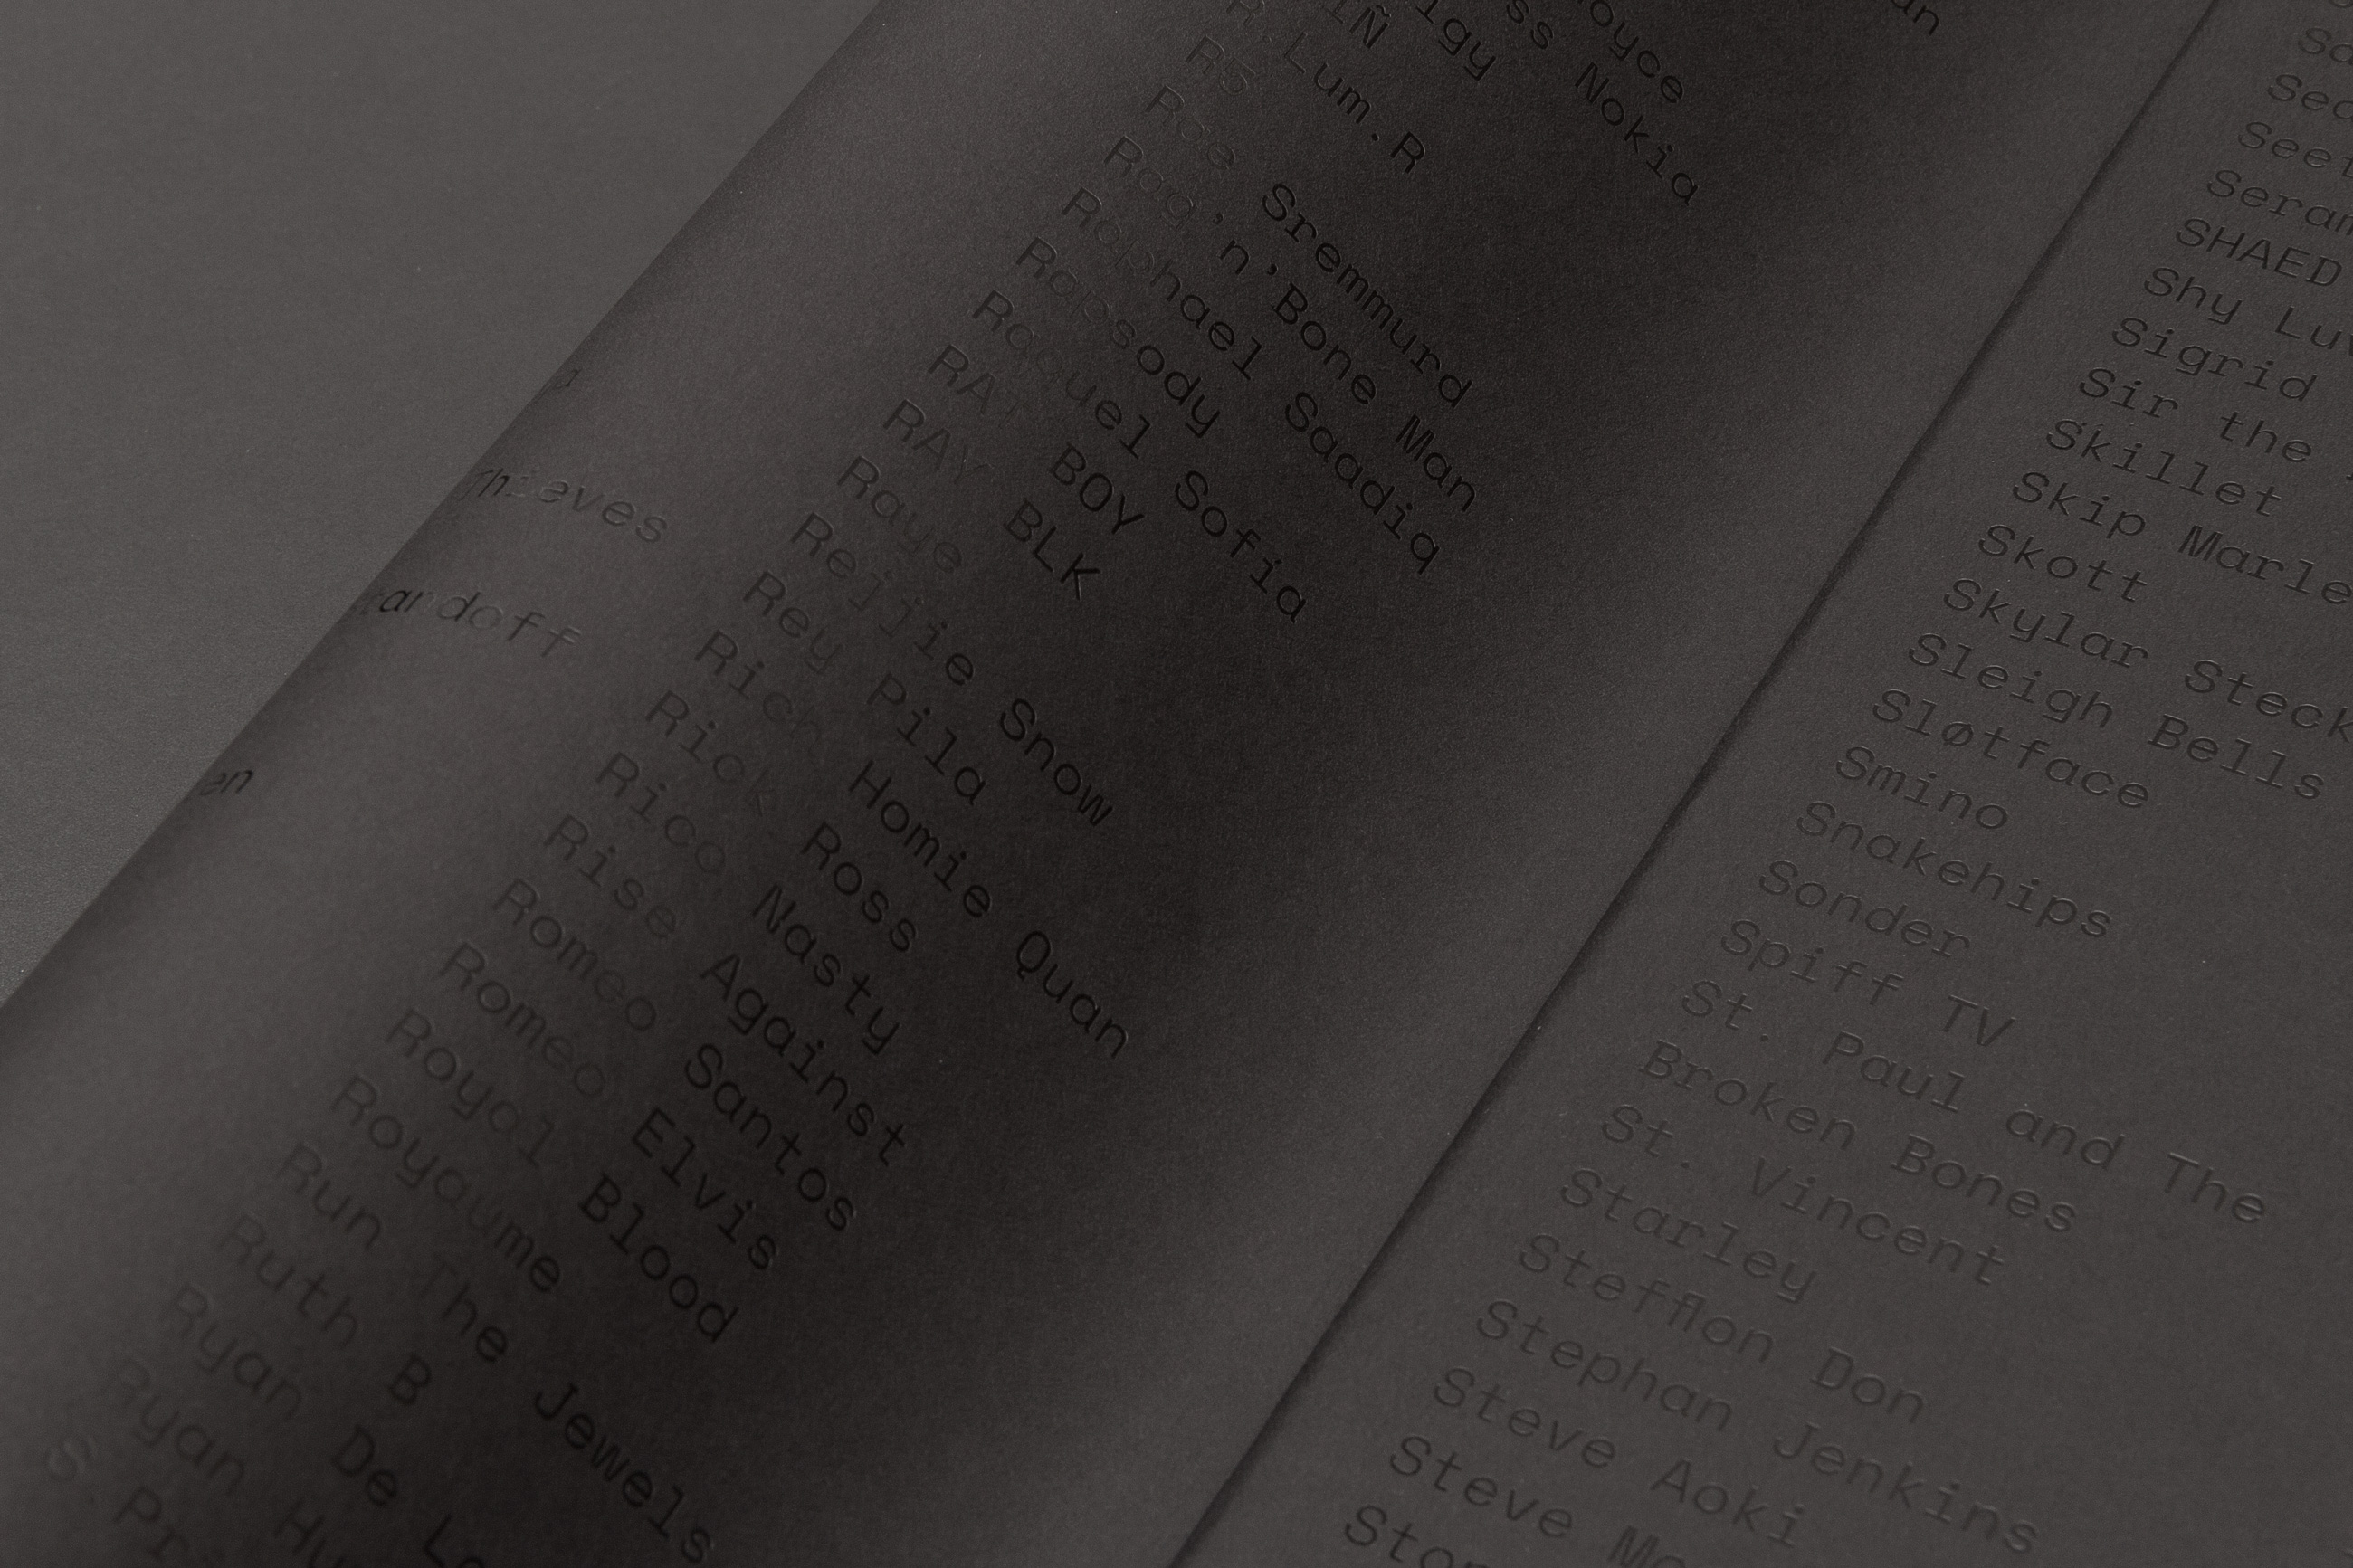 Thieves
Nokia
R.Lum.R
R3
Rae Sremmurd
Rag'n'Bone Man
Raphael Saadiq
Rapsody
Raquel Sofia
RAT BOY
RAY BLK
Raye
Rejjie Snow
Rey Pila
Rich Homie Quan
Rick Ross
Rico Nasty
Rise Against
Romeo Santos
Romeo Elvis
Royal Blood
Royaume
Run The Jewels
Ruth B
Ryan De
Ryan
S.
SHAED
Shy
Sigrid
Sir the
Skillet
Skip
Skott
Skylar
Sleigh Bells
Sløtface
Smino
Snakehips
Sonder
Spiff TV
St. Paul and The
Broken Bones
St. Vincent
Starley
Stefflon Don
Stephan Jenkins
Steve Aoki
Steve